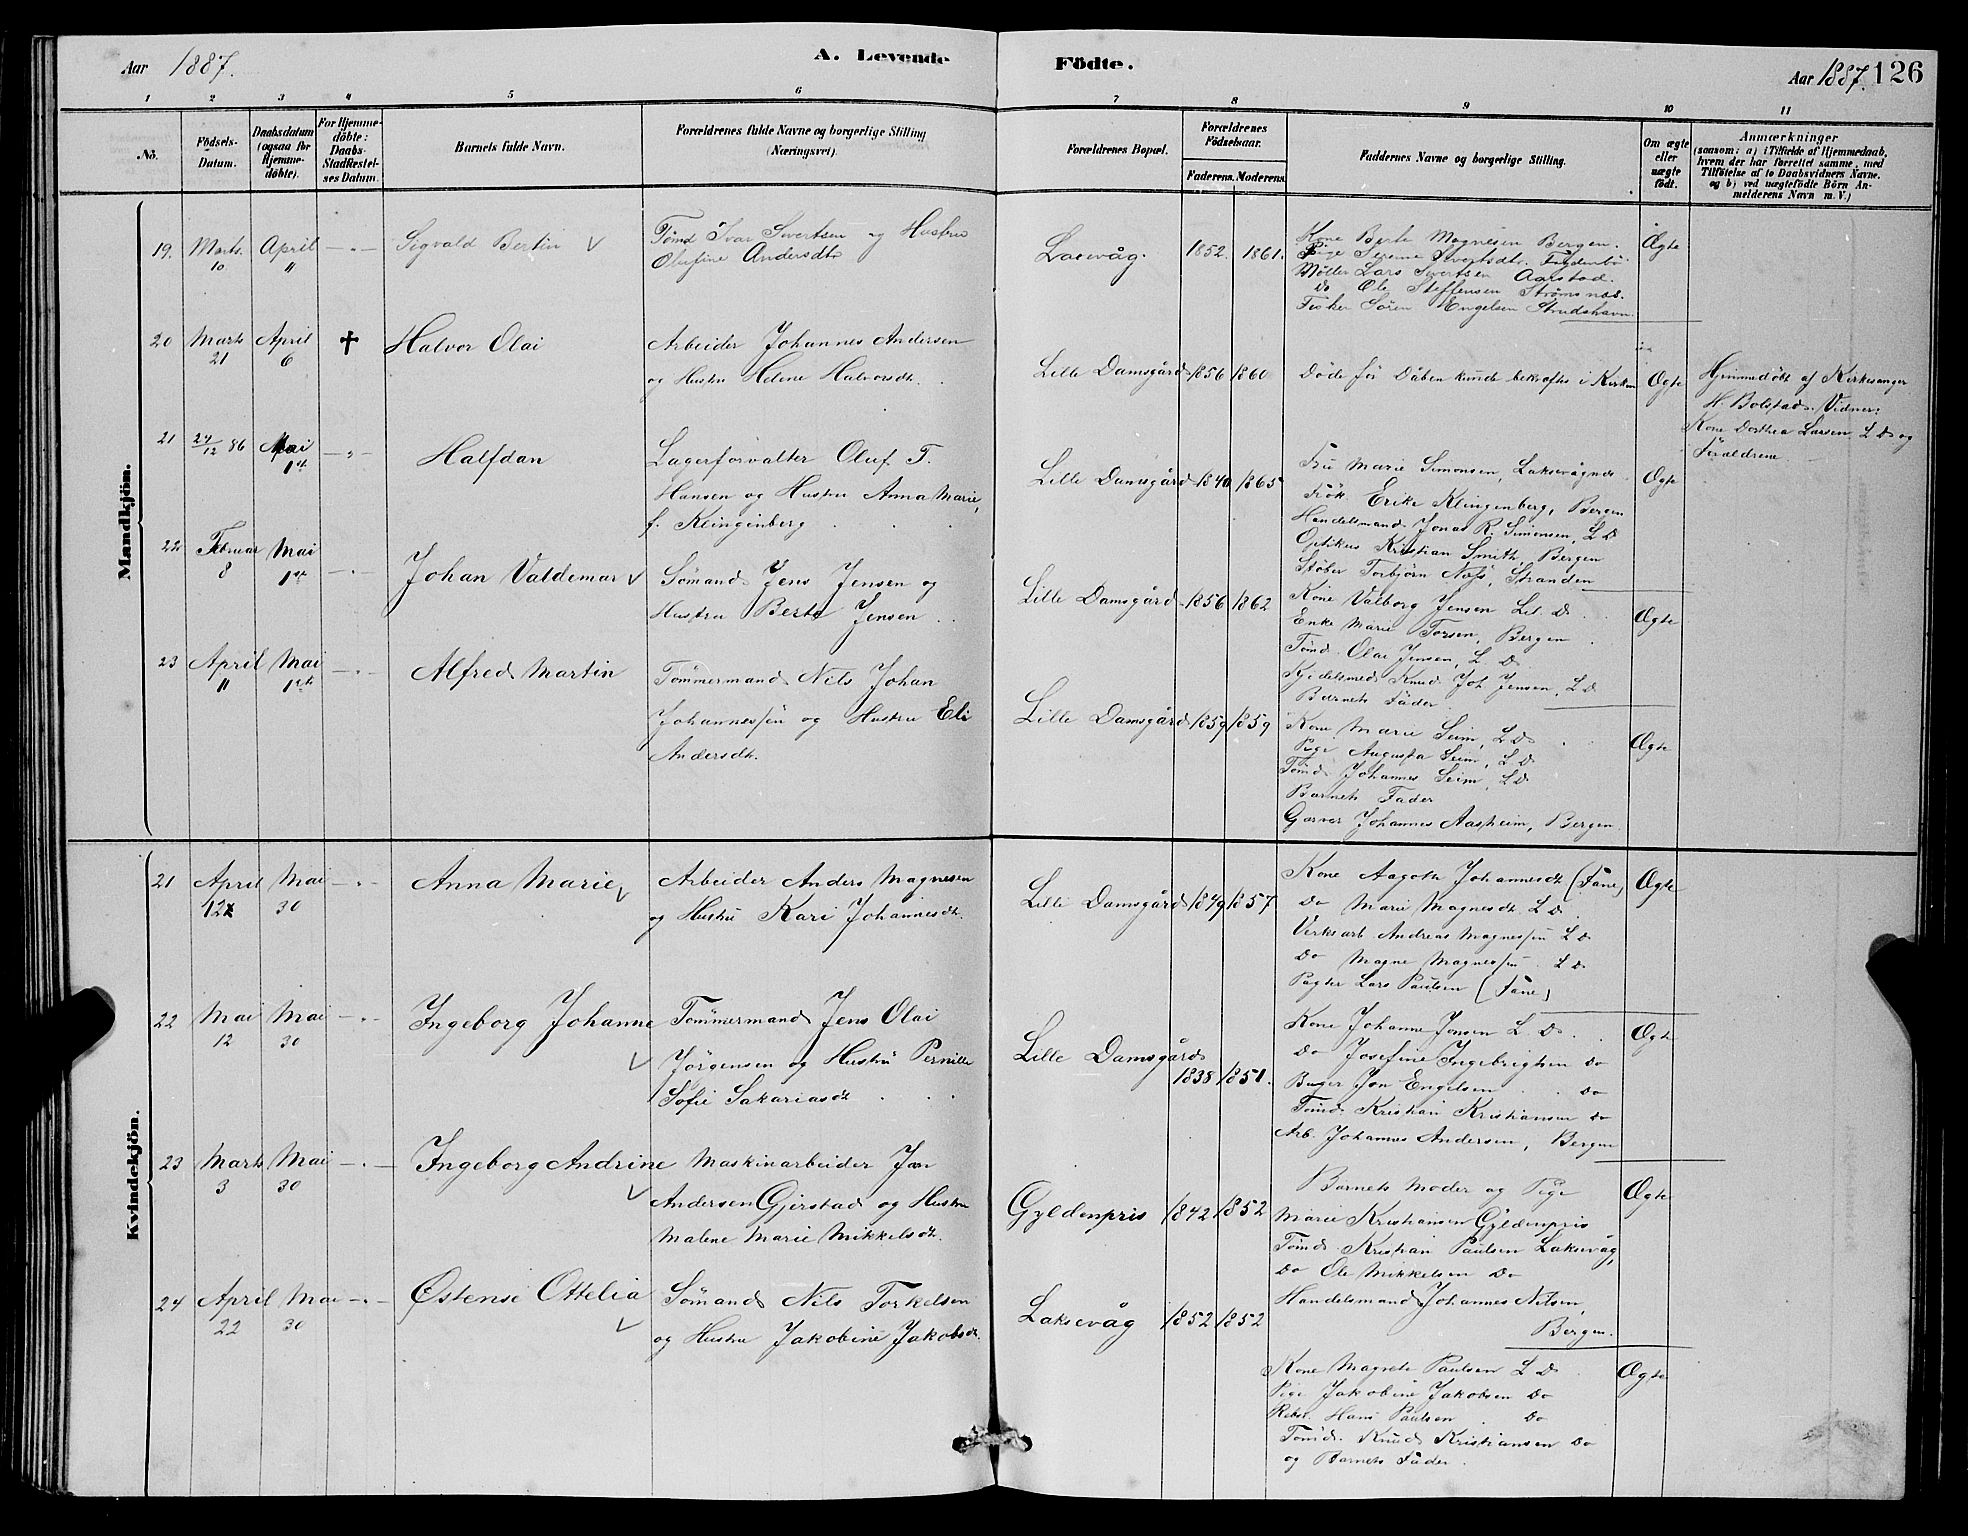 Aar 1887.
A. Levende
Födte.
Aar 1887. 126
1 2 3 4 5 6 7 8 9 10 11
No.
Födsels-
Datum.
Daabsdatum
(ogsaa for
Hjemme-
döbte).
For Hjemme-
döbte:
Daabs-
Stadfæstel-
ses Datum.
Barnets fulde Navn.
Forældrenes fulde Navne og borgerlige Stilling
(Næringsvei).
Forældrenes Bopæl.
Forældrenes
Födselsaar.
Faderens. Moderens.
Faddernes Navne og borgerlige Stilling.
Om ægte
eller
uægte
födt.
Anmærkninger
(saasom: a) i Tilfælde af Hjemmedaab,
hvem der har forrettet samme, med
Tilföielse af to Daabsvidners Navne.
og b) ved uægtefödte Börn An-
melderens Navn m. V.)
Mandkjön.
19. Marts 10 April 11 - " - Sigvald Bertin
Tömd Ivar Sivertsen og Hustru
Olufine Andersdtr
Laxevåg. 1852. 1861.
Kone Berte Magnesen Bergen.
Pige Serine Sivertsdtr.
Möller Lars Sivertsen Aarstad.
Do Ole Steffensen Strömsnæs.
Fisker Sören Engelsen Strudshavn.
Ægte
20 Marts 21 April 6 † Halvor Olai
Arbeider Johannes Andersen
og Hustru Helene Halvorsdtr.
Lille Damsgård 1856 1860
Döde för Dåben kunde bekræftes i Kirken
Ægte
Hjemmedöbt af Kirkesanger
H. Bolstad. Vidner:
Kone Dorthea Larsen L D og
Foraldrene
21 24/12 86 Mai 1st - " - Halfdan
Lagerforvalter Oluf T.
Hansen og Hustru Anna Marie,
f. Klingenberg
Lille Damsgård 1840 1865
Fru Marie Simonsen, Laksevågnæs
Frök. Erike Klingenberg, Bergen
Handelsmand Jonas R. Simonsen, L D
Optikus Kristian Smith, Bergen
Stöber Torbjörn Næss, Stranden
Ægte
22 Februar 8 Mai 1st - " - Johan Valdemar
Sömand Jens Jensen og
Hustru Berte Jensen
Lille Damsgård 1856 1862
Kone Valborg Jensen Lil. D.
Enke Marie Torsen, Bergen
Tömd. Olai Jensen, L. D.
Kjedelsmed Knud Joh Jensen, L D
Barnets Fader.
Ægte
23 April 11 Mai 1st - " - Alfred Martin
Tömmermand Nils Johan
Johannessen og Hustru Eli
Andersdtr.
Lille Damsgård 1859 1859
Kone Marie Seim, L D
Pige Augusta Seim, L D
Tömd. Johannes Seim, L D
Barnets Fader
Garver Johannes Aasheim, Bergen
Ægte
Kvindekjön.
21 April 12 Mai 30 - " - Anna Marie
Arbeider Anders Magnesen
og Hustru Kari Johannesdtr.
Lille Damsgård 1849 1857
Kone Aagoth Johannesdtr (Fane)
Do Marie Magnesdtr. L D
Verksarb. Andreas Magnessen L D
Do Magne Magnessen L D
Pagter Lars Paulsen (Fane)
Ægte
22 Mai 12 Mai 30 - " - Ingeborg Johanne
Tömmermand Jens Olai
Jörgensen og Hustru Pernille
Sofie Sakariasdtr
Lille Damsgård
1838 1851.
Kone Johanne Jonsen L. D.
Do Josefine Ingebrigtsen Do
Bager Jon Engelsen Do
Tömd. Kristian Kristiansen Do
Arb. Johannes Andersen, Bergen
Ægte
23 Marts 3 Mai 30 - " - Ingeborg Andrine
Maskinarbeider Jan
Andersen Gjerstad og Hustru
Malene Marie Mikkelsdtr.
Gyldenpris 1842 1852
Barnets Moder og Pige
Marie Kristiansen Gyldenpris
Tömd. Kristian Paulsen Laksevåg,
Do Ole Mikkelsen Do
Handelsmand Johannes Nilsen,
Bergen.
Ægte
24 April 22 Mai 30 - " - Östense Ottelia
Sömand Nils Torkelsen
og Hustru Jakobine Jakobsdtr.
Laksevåg 1852 1852
Kone Magrete Paulsen L D
Pige Jakobine Jakobsen Do
Rebsl. Hans Paulsen Do
Tömd. Knud Kristiansen Do
og Barnets Fader.
Ægte